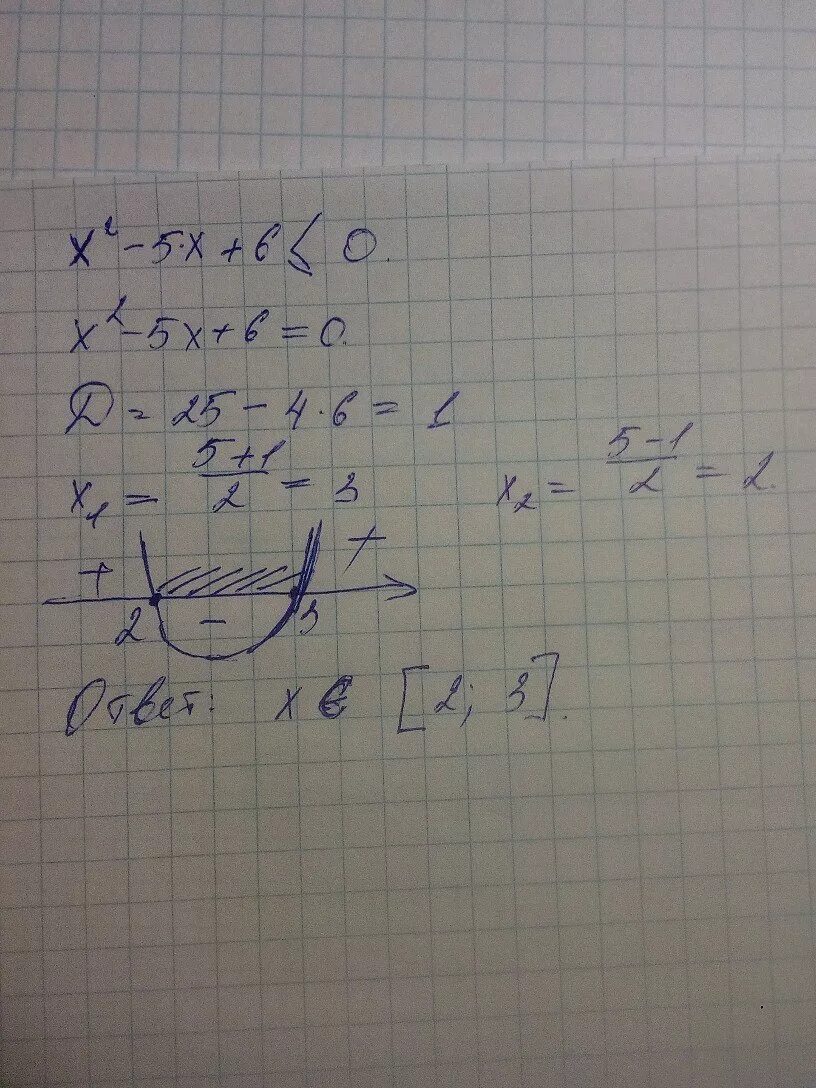 x² - 5·x + 6 < 0.
x² - 5x + 6 = 0.
Д = 25 - 4 · 6 = 1
x₁ = (5+1)/2 = 3 x₂ = (5-1)/2 = 2.
+ - +
2 3
Ответ: x ∈ [2; 3].